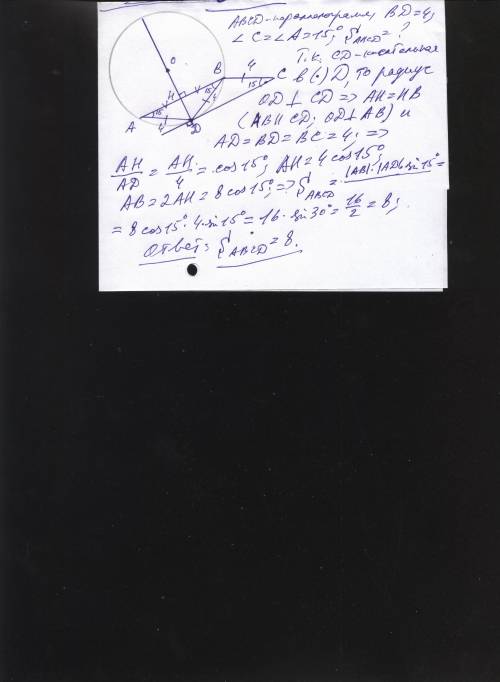 ABCD-параллелограмм, BD=4;
∠C=∠A=15°; S ABCD=?
Т.к. CD-касательная
в (·) D, то радиус
OD ⊥ CD => AH=HB
(AB ∥ CD; OD ⊥ AB) и
AD=BD=BC=4; =>
O
B
4
C
15°
H
15°
A
4
D
AH/AD = AH/4 = cos15°; AH=4cos15°;
AB=2AH=8cos15°; => S ABCD = |AB|·|AD|·sin15° =
= 8cos15°·4·sin15° = 16·sin30° = 16/2 = 8;
Ответ: S ABCD = 8.